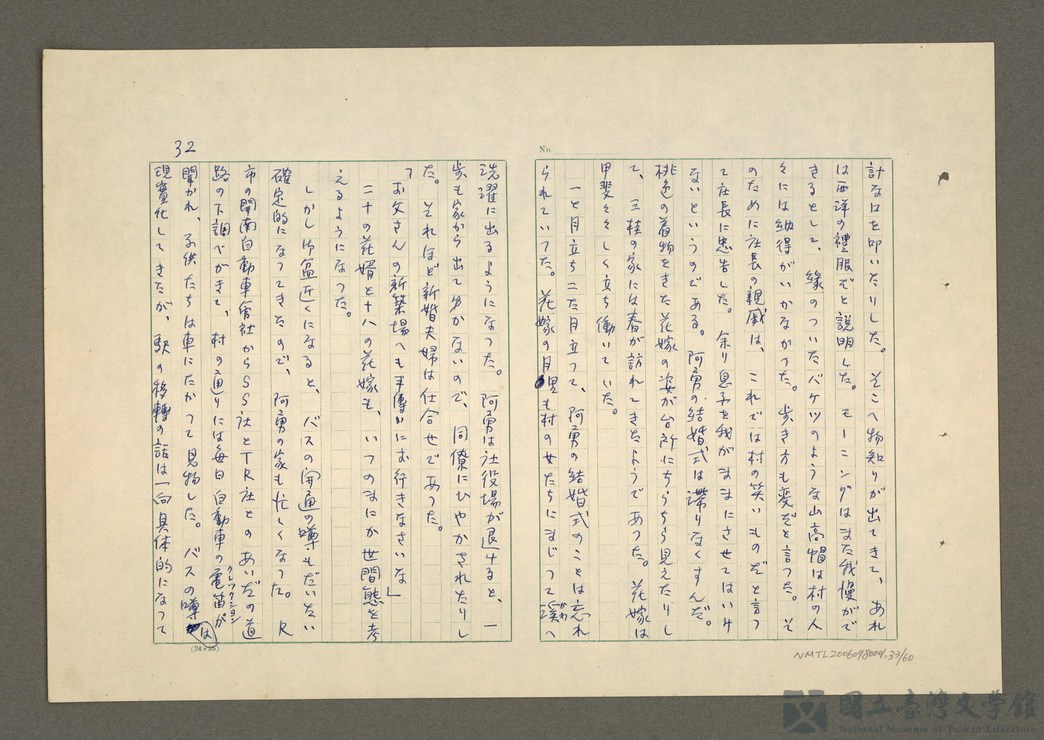 No.
計な口を叩いたりした。そこへ物知りが出てきて、あれ
は西洋の禮服でと説明した。モーニングはまだ我慢がで
きるとして、縁のついたバケツのような山高帽は村の人
々には納得がいかなかつた。歩き方も変だと言つた。そ
のために社長の親戚は、これでは村の笑いものだと言つ
て庄長に忠告した。余り息子を我がままにさせてはいけ
ないというのである。阿勇の結婚式は滞りなくすんだ。
桃色の着物をきた花嫁の姿が台所にちらちら見えたりし
て、三桂の家には春が訪れてきたようであつた。花嫁は
甲斐々々しく立ち働いていた。
一と月立ち二た月立つて、阿勇の結婚式のことは忘れ
られていつた。花嫁の月里も村の女たちにまじつて溪へ
かわ
32
洗濯に出るようになつた。阿勇は社役場が退けると、一
歩も家から出てゆかないので、同僚にひやかされたりし
た。それほど新婚夫婦は仕合せであつた。
「お父さんの新築場へも手傳いにお行きなさいな」
二十の花婿と十八の花嫁も、いつのまにか世間態を考
えるようになつた。
しかしお盆近くになると、バスの開通の噂もだいたい
確定的になつてきたので、阿勇の家も忙しくなつた。R
市の閩南自動車會社からSS社とTR社とのあいだの道
路の下調べがきて、村の通りには毎日自動車の電笛が
クレツクシヨン
聞かれ、子供たちは車にたかつて見物した。バスの噂は
現實化してきたが、駅の移轉の話は一向具体的になつて
(24×25)
NMTL20060980004.33/60
國立臺灣文學館
National Museum of Taiwan Literature